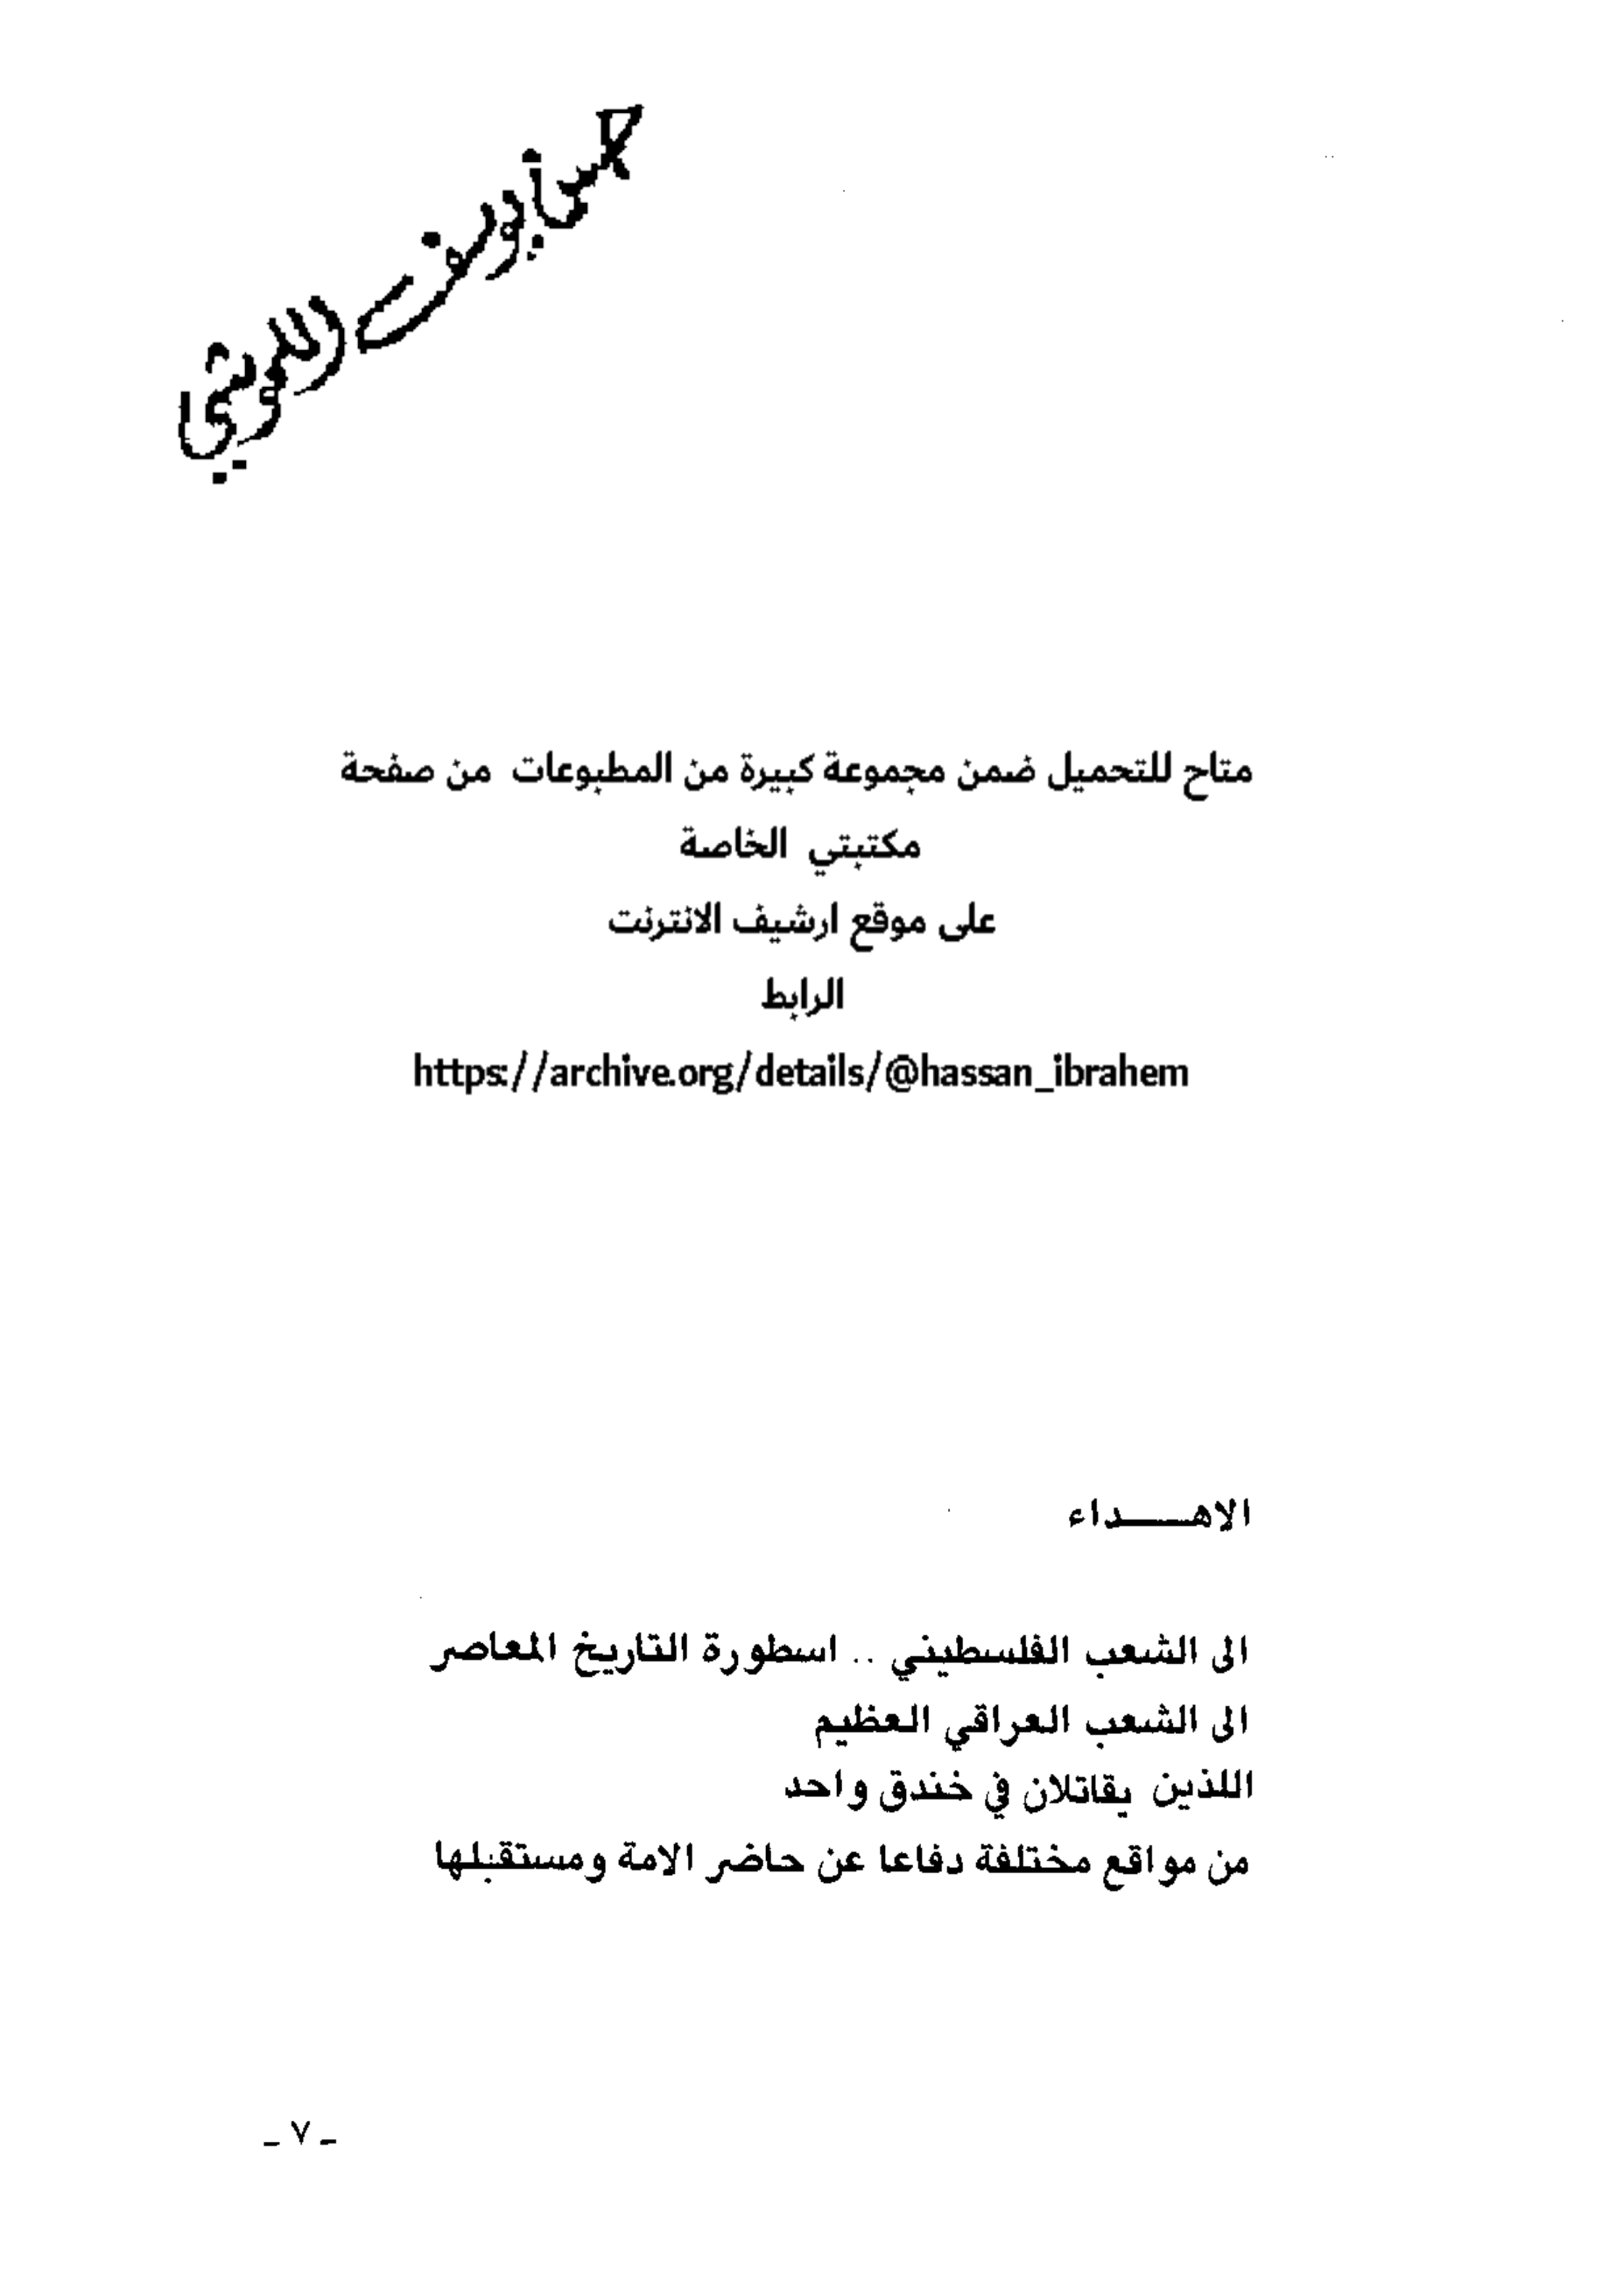 متاح للتحميل ضمن مجموعة كبيرة من المطبوعات من صفحة
مكتبتي الخاصة
على موقع ارشيف الانترنت
الرابط
https://archive.org/details/@hassan_ibrahem
الاهـــــداء
الى الشعب الفلسطيني .. اسطورة التاريخ المعاصر
الى الشعب العراقي العظيم
اللذين يقاتلان في خندق واحد
من مواقع مختلفة دفاعا عن حاضر الامة ومستقبلها
ـ ٧ ـ